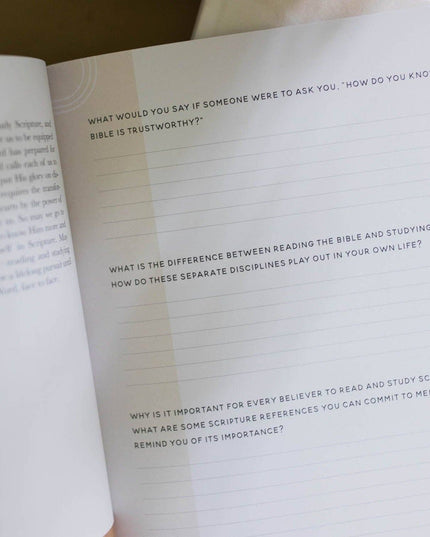 udy Scripture, and
us to be equipped
has prepared for
calls each of us to
His glory on dis-
requires the transfor-
hearts by the power of
to. So may we go to
know Him more and
in Scripture. May
reading and studying
be a lifelong pursuit until
Word, face to face.
WHAT WOULD YOU SAY IF SOMEONE WERE TO ASK YOU, "HOW DO YOU KNO
BIBLE IS TRUSTWORTHY?"
WHAT IS THE DIFFERENCE BETWEEN READING THE BIBLE AND STUDYING
HOW DO THESE SEPARATE DISCIPLINES PLAY OUT IN YOUR OWN LIFE?
WHY IS IT IMPORTANT FOR EVERY BELIEVER TO READ AND STUDY SC
WHAT ARE SOME SCRIPTURE REFERENCES YOU CAN COMMIT TO ME
REMIND YOU OF ITS IMPORTANCE?